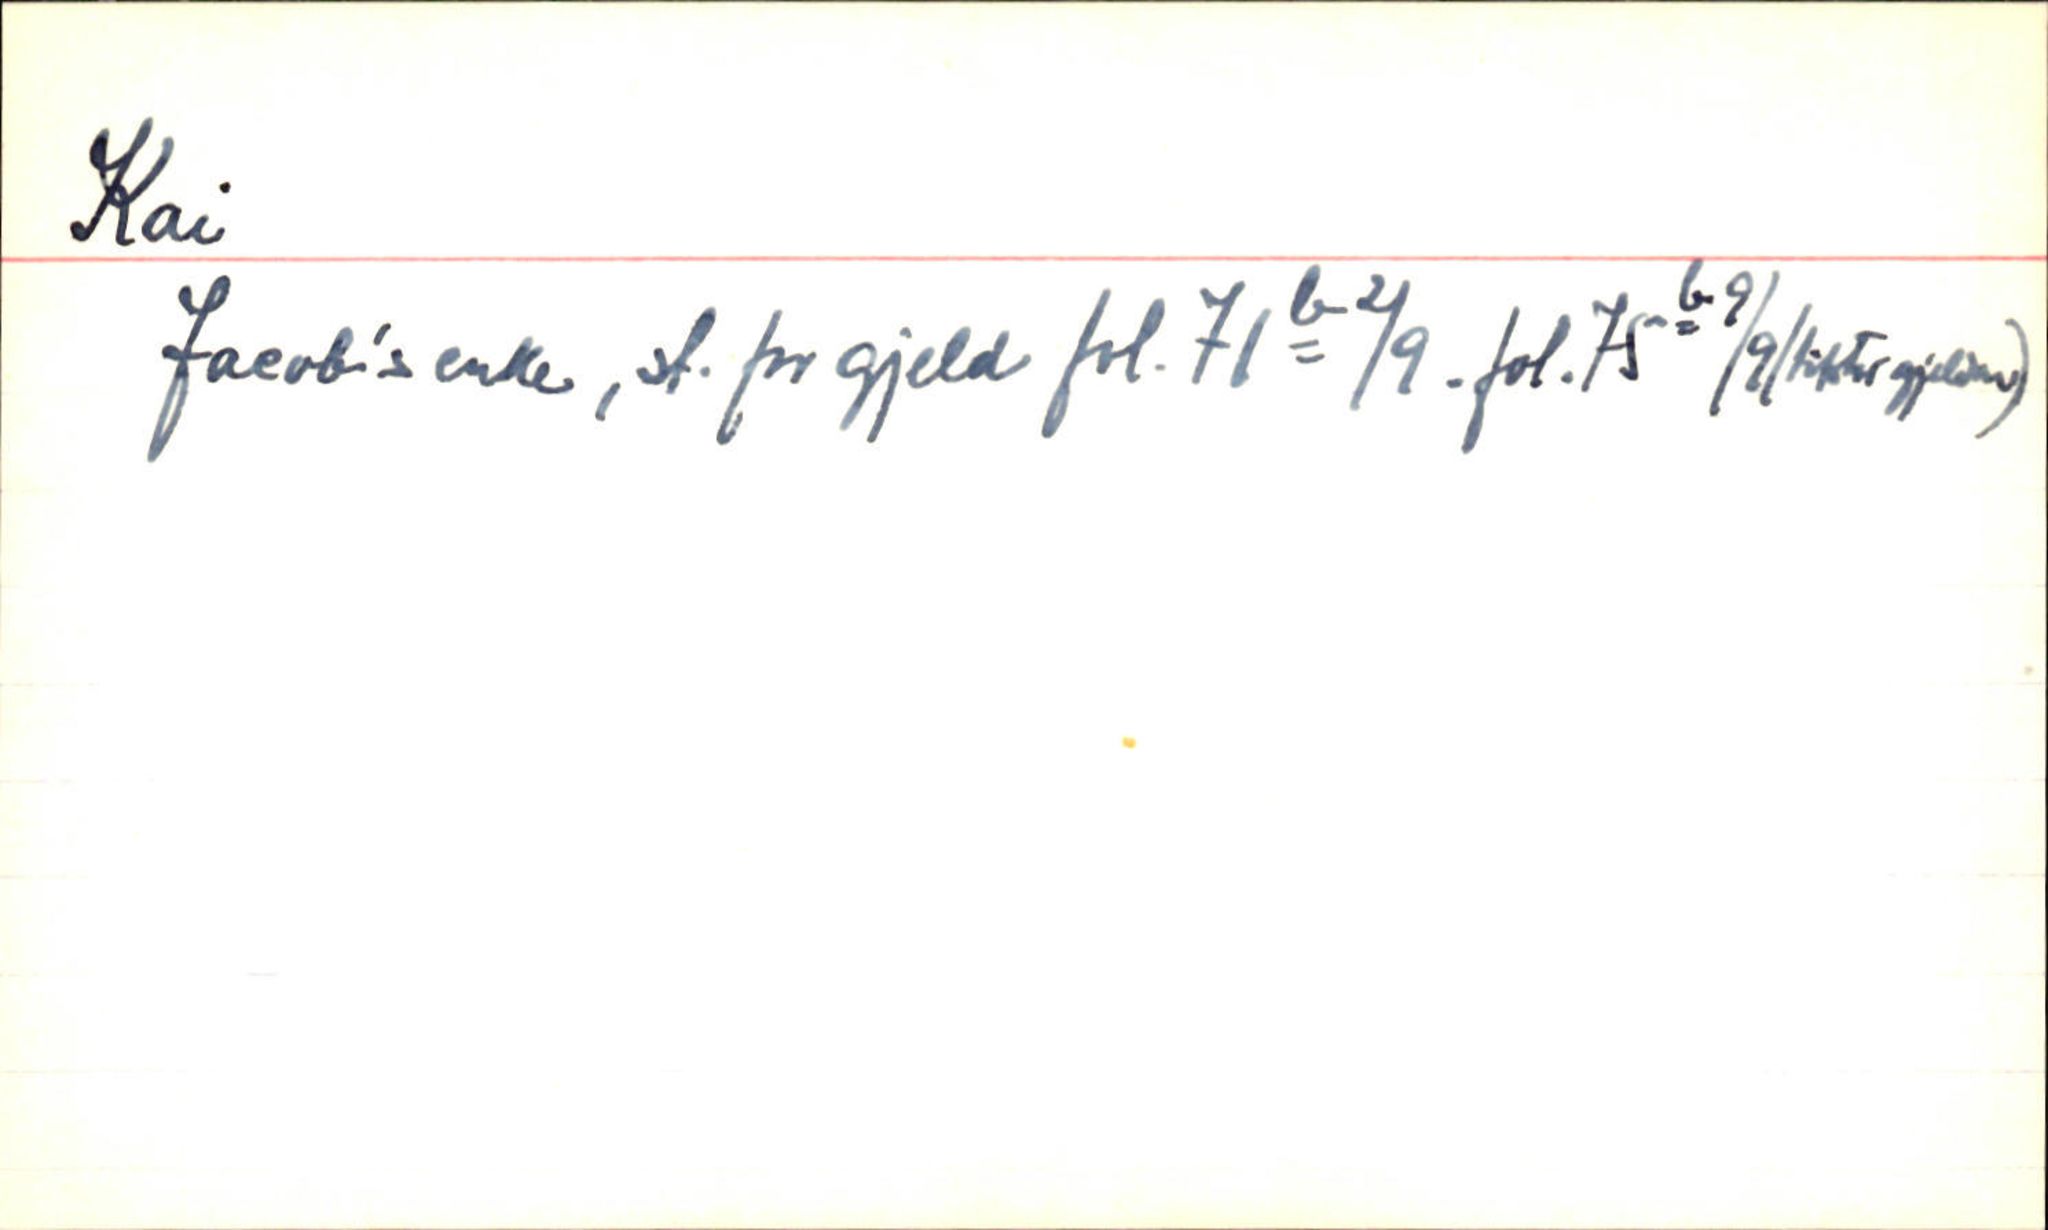 Kai
Jacob's enke, st. for gjeld fol. 71 b 2/9. fol. 75 b 9/9